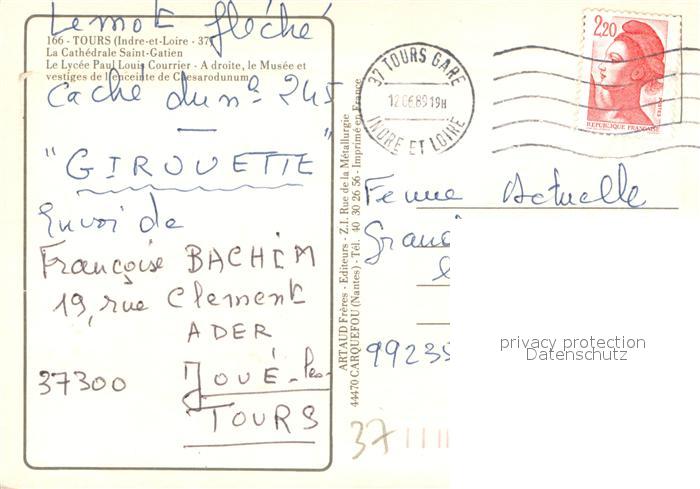 Le mot fléché
166 - TOURS (Indre-et-Loire - 37)
La Cathédrale Saint-Gatien
Le Lycée Paul Louis Courrier - A droite, le Musée et
vestiges de l'enceinte de Caesarodunum
Caché du n° 245
—
"GIROUETTE"
Envoi de
Françoise BACHEM
19, rue Clement
ADER
37300 JOUÉ-les-
TOURS
ARTAUD Frères - Editeurs - Z.I. Rue de la Métallurgie
44470 CARQUEFOU (Nantes) - Tél. 40 30 26 56 - Imprimé en France
37 TOURS GARE
12 19H
INDRE ET LOIRE
2,20
POSTES
REPUBLIQUE FRANÇAISE
Femme Actuelle
Grand
99235
37
privacy protection
Datenschutz